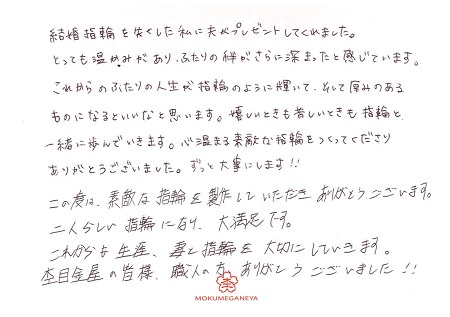 結婚指輪を失くした私に夫がプレゼントしてくれました。
とっても温かみがあり、ふたりの絆がさらに深まったと感じています。
これからのふたりの人生が指輪のように輝いて、そして厚みのある
ものになるといいなと思います。嬉しいときも苦しいときも指輪と
一緒に歩んでいきます。心温まる素敵な指輪をつくってくださり
ありがとうございました。ずっと大事にします!!
この度は、素敵な指輪を製作していただきありがとうございます。
二人らしい指輪になり、大満足です。
これからも生涯、妻と指輪を大切にしていきます。
杢目金屋の皆様、職人の方、ありがとうございました!!
MOKUMEGANEYA